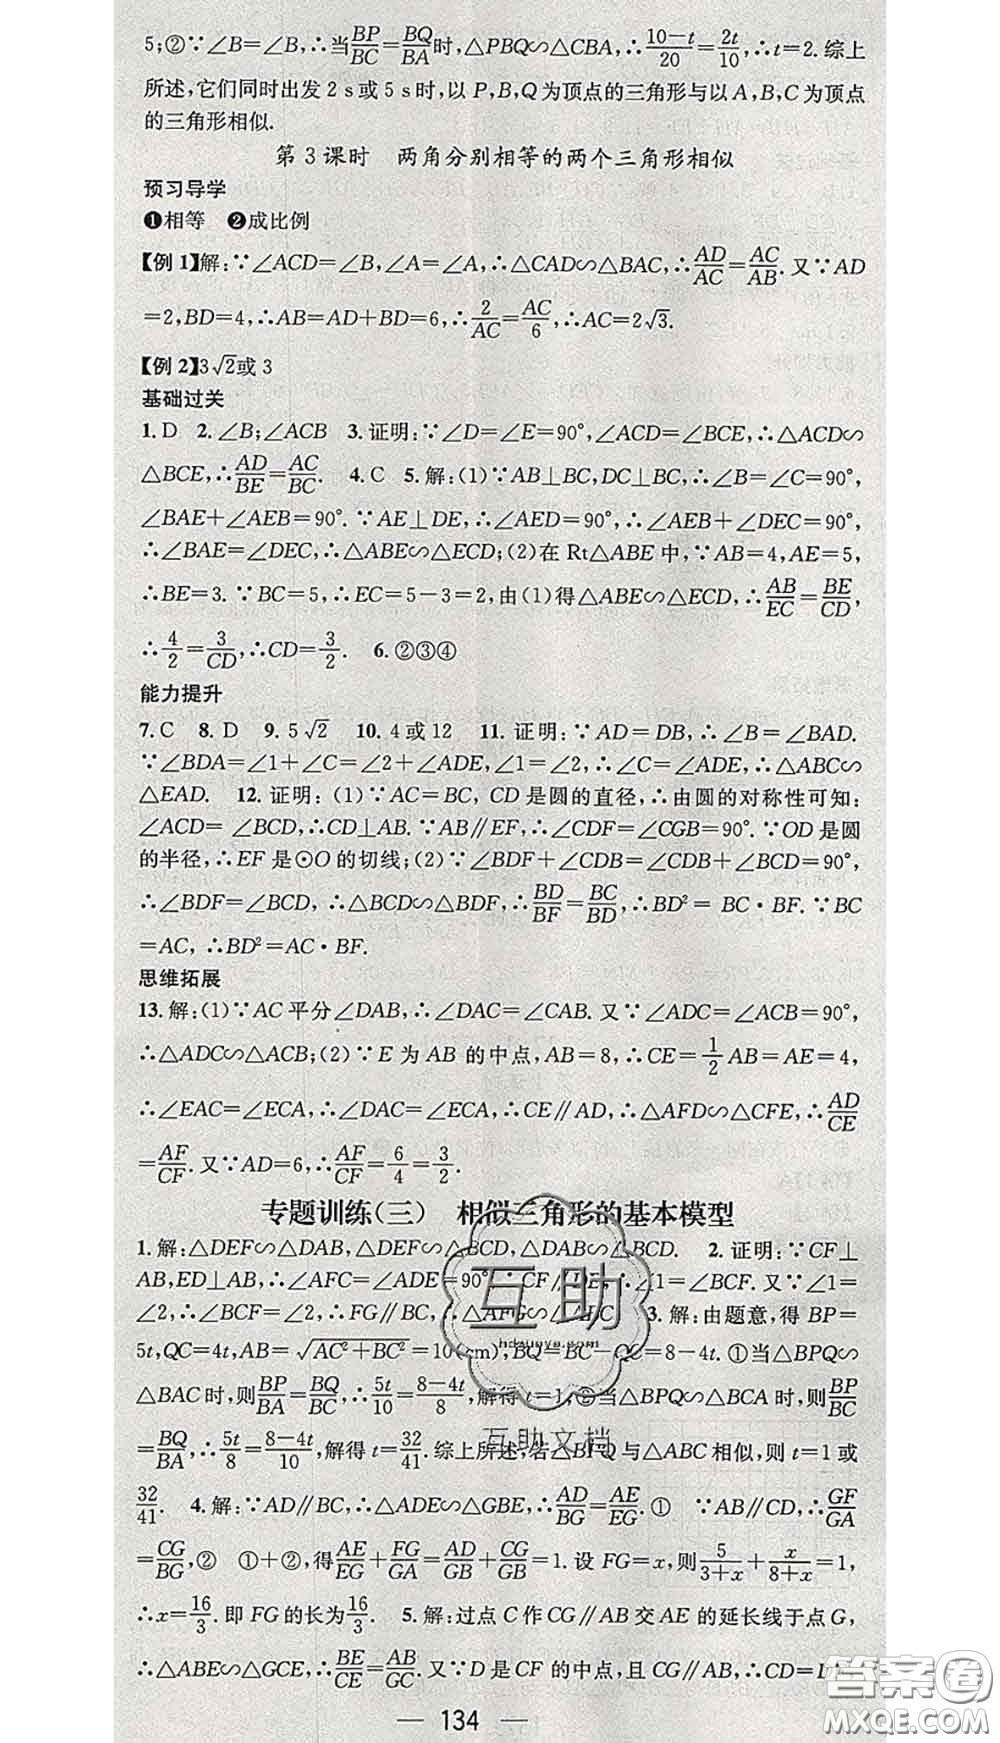 5;②∵∠B=∠B,∴当BP/BC=BQ/BA时,△PBQ∽△CBA,∴(10-t)/20=2t/10,∴t=2.综上
所述,它们同时出发2 s或5 s时,以P,B,Q为顶点的三角形与以A,B,C为顶点
的三角形相似.
第3课时 两角分别相等的两个三角形相似
预习导学
❶相等 ❷成比例
【例1】解:∵∠ACD=∠B,∠A=∠A,∴△CAD∽△BAC,∴AD/AC=AC/AB.又∵AD
=2,BD=4,∴AB=AD+BD=6,∴2/AC=AC/6,∴AC=2√3.
【例2】3√2或3
基础过关
1.D 2.∠B;∠ACB 3.证明:∵∠D=∠E=90°,∠ACD=∠BCE,∴△ACD∽
△BCE,∴AD/BE=AC/BC. 4.C 5.解:(1)∵AB⊥BC,DC⊥BC,∴∠B=∠C=90°,
∠BAE+∠AEB=90°.∵AE⊥DE,∴∠AED=90°,∴∠AEB+∠DEC=90°,
∴∠BAE=∠DEC,∴△ABE∽△ECD;(2)在Rt△ABE中,∵AB=4,AE=5,
∴BE=3.∵BC=5,∴EC=5-3=2,由(1)得△ABE∽△ECD,∴AB/EC=BE/CD,
∴4/2=3/CD,∴CD=3/2. 6.②③④
能力提升
7.C 8.D 9.5√2 10.4或12 11.证明:∵AD=DB,∴∠B=∠BAD.
∵∠BDA=∠1+∠C=∠2+∠ADE,∠1=∠2,∴∠C=∠ADE,∴△ABC∽
△EAD. 12.证明:(1)∵AC=BC,CD是圆的直径,∴由圆的对称性可知:
∠ACD=∠BCD,∴CD⊥AB.∵AB∥EF,∴∠CDF=∠CGB=90°.∵OD是圆
的半径,∴EF是⊙O的切线;(2)∵∠BDF+∠CDB=∠CDB+∠BCD=90°,
∴∠BDF=∠BCD,∴△BCD∽△BDF,∴BD/BF=BC/BD,∴BD²=BC·BF.∵BC
=AC,∴BD²=AC·BF.
思维拓展
13.解:(1)∵AC平分∠DAB,∴∠DAC=∠CAB.又∵∠ADC=∠ACB=90°,
∴△ADC∽△ACB;(2)∵E为AB的中点,AB=8,∴CE=1/2AB=AE=4,
∴∠EAC=∠ECA,∴∠DAC=∠ECA,∴CE∥AD,∴△AFD∽△CFE,∴AD/CE
=AF/CF.又∵AD=6,∴AF/CF=6/4=3/2.
专题训练(三) 相似三角形的基本模型
1.解:△DEF∽△DAB,△DEF∽△BCD,△DAB∽△BCD. 2.证明:∵CF⊥
AB,ED⊥AB,∴∠AFC=∠ADE=90°,∴CF∥DE,∴∠1=∠BCF.又∵∠1=
∠2,∴∠BCF=∠2,∴FG∥BC,∴△AFG∽ 3.解:由题意,得BP=
5t,QC=4t,AB=√(AC²+BC²)=10(cm),BQ=BC-QC=8-4t.①当△BPQ∽
△BAC时,则BP/BA=BQ/BC,∴5t/10=(8-4t)/8,解得t=1,②当△BPQ∽△BCA时,则BP/BC
=BQ/BA,∴5t/8=(8-4t)/10,解得t=32/41.综上所述,若△BPQ与△ABC相似,则t=1或
32/41. 4.解:∵AD∥BC,∴△ADE∽△GBE,∴AD/BG=AE/EG.① ∵AB∥CD,∴GF/GA
=CG/BG,② ①+②,得AE/EG+FG/GA=AD/GB+CG/GB=1.设FG=x,则5/(3+x)+x/(8+x)=1,
∴x=16/3.即FG的长为16/3. 5.解:过点C作CG∥AB交AE的延长线于点G,
∴△ABE∽△GCE,∴BE/CE=AB/GC.又∵D是CF的中点,且CG∥AB,∴CD=
— 134 —
互助
互助文档
答案圈
MXQE.COM